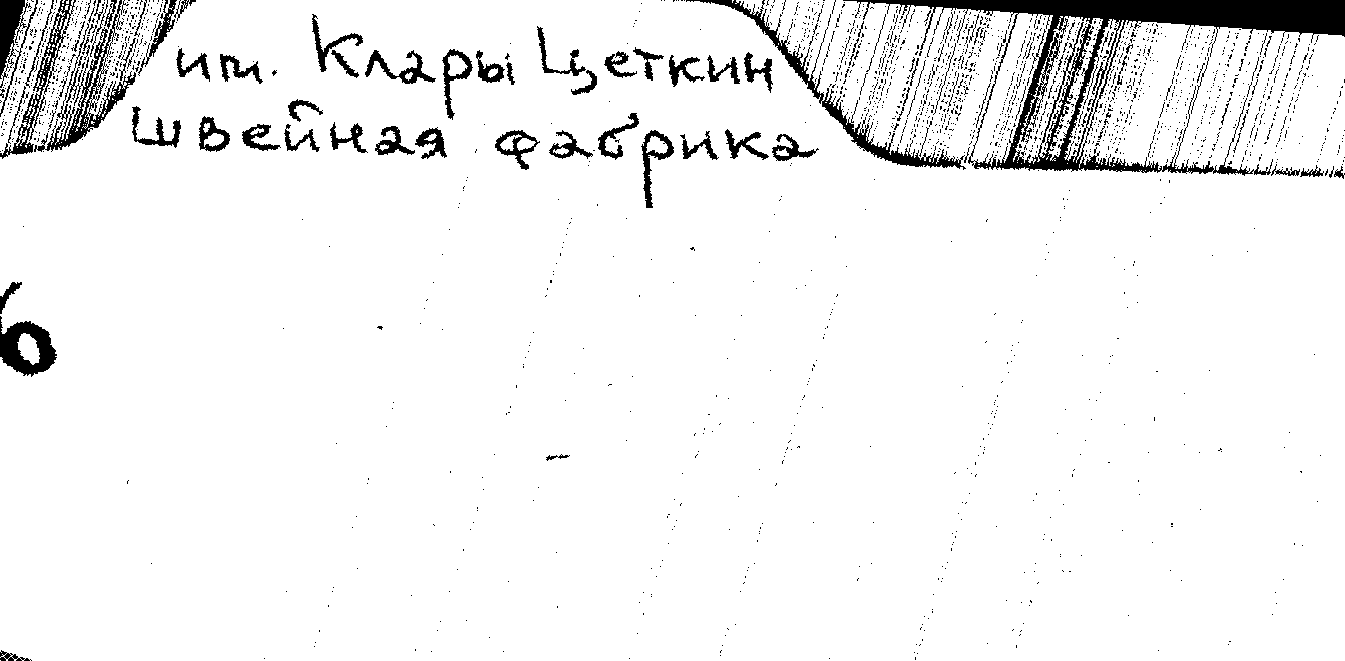 им. Клары Цеткин
швейная фабрика
6